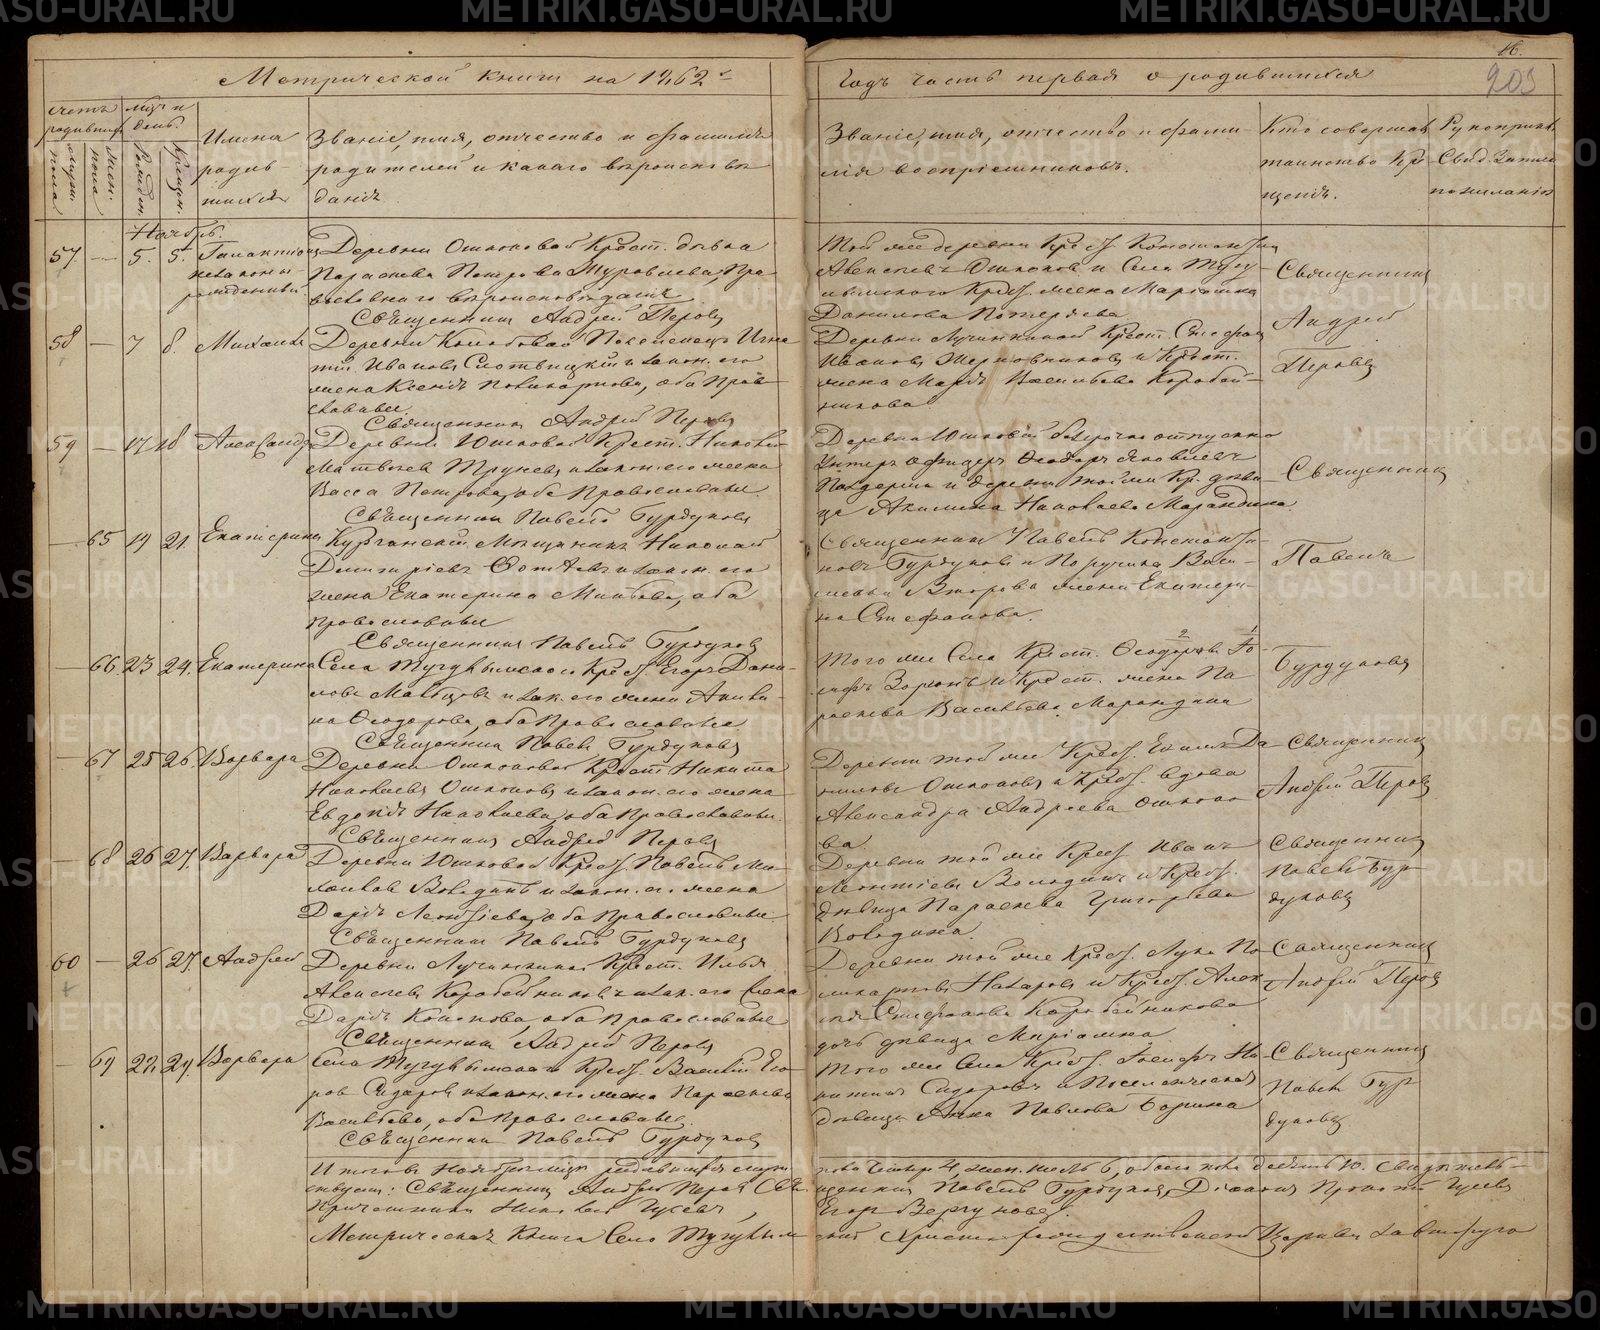 METRIKI.GASO-URAL.RU
16.
203
Метрической книги на 1862й
Годъ часть первая о родившихся
Счетъ родившихся
Мужеск. пола
Жен. пола
Мѣц. и день
Рожден.
Крещен.
Имена родившихся
Званіе, имя, отчество и фамилія
родителей и какаго вѣроисповѣ
данія
Званіе, имя, отчество и фами-
лія воспріемниковъ.
Кто совершалъ
таинство Кре
щенія.
Рукоприкл.
Свид. записи
по желанію
Ноябрь.
57 — 5. 5. Галактіонъ
незаконно-
рожденный
Деревни Ошкоковой Крест. дѣвка
Параскева Петрова Муравьева, Пра
вославнаго вѣроисповѣданія
Священникъ Андрей Перовъ
Той же деревни Крест. Константинъ
Алексѣевъ Ошкоковъ и Села Тугу
лымскаго Крест. жена Маріамна
Данилова Потеряева
Священникъ
Андрей
Перовъ
58 — 7 8. Михаилъ
Иванова
жена Ксенія Поликарпова, оба Право
славные
Священникъ Андрей Перовъ
Деревни Лучинкиной Крест. Стефанъ
Ивановъ и Крест.
жена Марія Васильева Коробей-
никова
59 — 17 18 Александръ
Деревни Юшковой Крест. Николай
Матвѣевъ Трунёвъ и закон. его жена
Васса Петрова, оба Православные
Священникъ Павелъ Бурдуковъ
Деревни Юшковой безсрочно отпускно
Унтеръ офицеръ Ѳеодоръ Яковлевъ
и деревни той же Кр. дѣви-
ца Акилина Николаева Марандина
Священникъ
Павелъ
Бурдуковъ
— 65 19 21. Екатерина
Курганскій Мѣщанинъ Николай
Димитріевъ и закон. его
жена Екатерина оба
православные
Священникъ Павелъ Бурдуковъ
Священникъ Павелъ Константи-
новъ Бурдуковъ и Поручика Васи-
Второва жена Екатери-
на Стефанова.
— 66. 23 24. Екатерина
Села Тугулымскаго Крест. Егоръ Дани-
ловъ Мальцовъ и зак. его жена Акили-
на Ѳеодорова, оба Православные
Священникъ Павелъ Бурдуковъ
Того же Села Крест. Ѳеодоровъ Іо-
сифъ и Крест. жена Па
раскева Васильева Марандина
— 67 25 26. Варвара
Деревни Ошкоковой Крест. Никита
Николаевъ Ошкоковъ и закон. его жена
Евдокія Николаева, оба Православные.
Священникъ Андрей Перовъ
Деревни той же Крест. Да
ниловъ Ошкоковъ и Крест. вдова
Александра Андреева Ошкоко
ва.
Священникъ
Андрей Перовъ
— 68 26 27. Варвара
Деревни Юшковой Крест. Павелъ Ми-
хайловъ Володинъ и закон. его жена
Дарія Леонтіева, оба Православные
Священникъ Павелъ Бурдуковъ
Деревни той же Крест. Иванъ
Леонтіевъ Володинъ и Крест.
дѣвица Параскева Григорьева
Володина.
Священникъ
Павелъ Бур
дуковъ
60 — 26 27. Андрей
Деревни Лучинкиной Крест. Илья
Алексѣевъ Коробейниковъ и зак. его жена
Дарія Кононова, оба Православные
Священникъ Андрей Перовъ
Деревни той же Крест. Лука По
ликарповъ Назаровъ и Крест. Алек
сѣя Стефанова Коробейникова
дочь дѣвица Маріамна
Священникъ
Андрей Перовъ
— 69 29. Варвара
Села Тугулымскаго Крест. Василій Его
ровъ Сидоровъ и закон. его жена Параскева
Васильева, оба Православные
Священникъ Павелъ Бурдуковъ
Того же Села Крест. Іосифъ Ни
китинъ Сидоровъ и Поселенческая
дѣвица Анна Павлова Борина
Священникъ
Павелъ Бур
дуковъ
Итого въ Ноябрѣ мѣсяцѣ родившихся муж
пола четыре 4, жен. шесть 6, обоего пола десять 10. Свидѣтель-
ствуемъ: Священникъ Андрей Перовъ Свя
щенникъ Павелъ Бурдуковъ, Діаконъ Прокопій Гусевъ
Причетники Николай Гусевъ,
Егоръ Вергуновъ.
Метрическая Книга Села Тугулым
ской Христорождественской Церкви